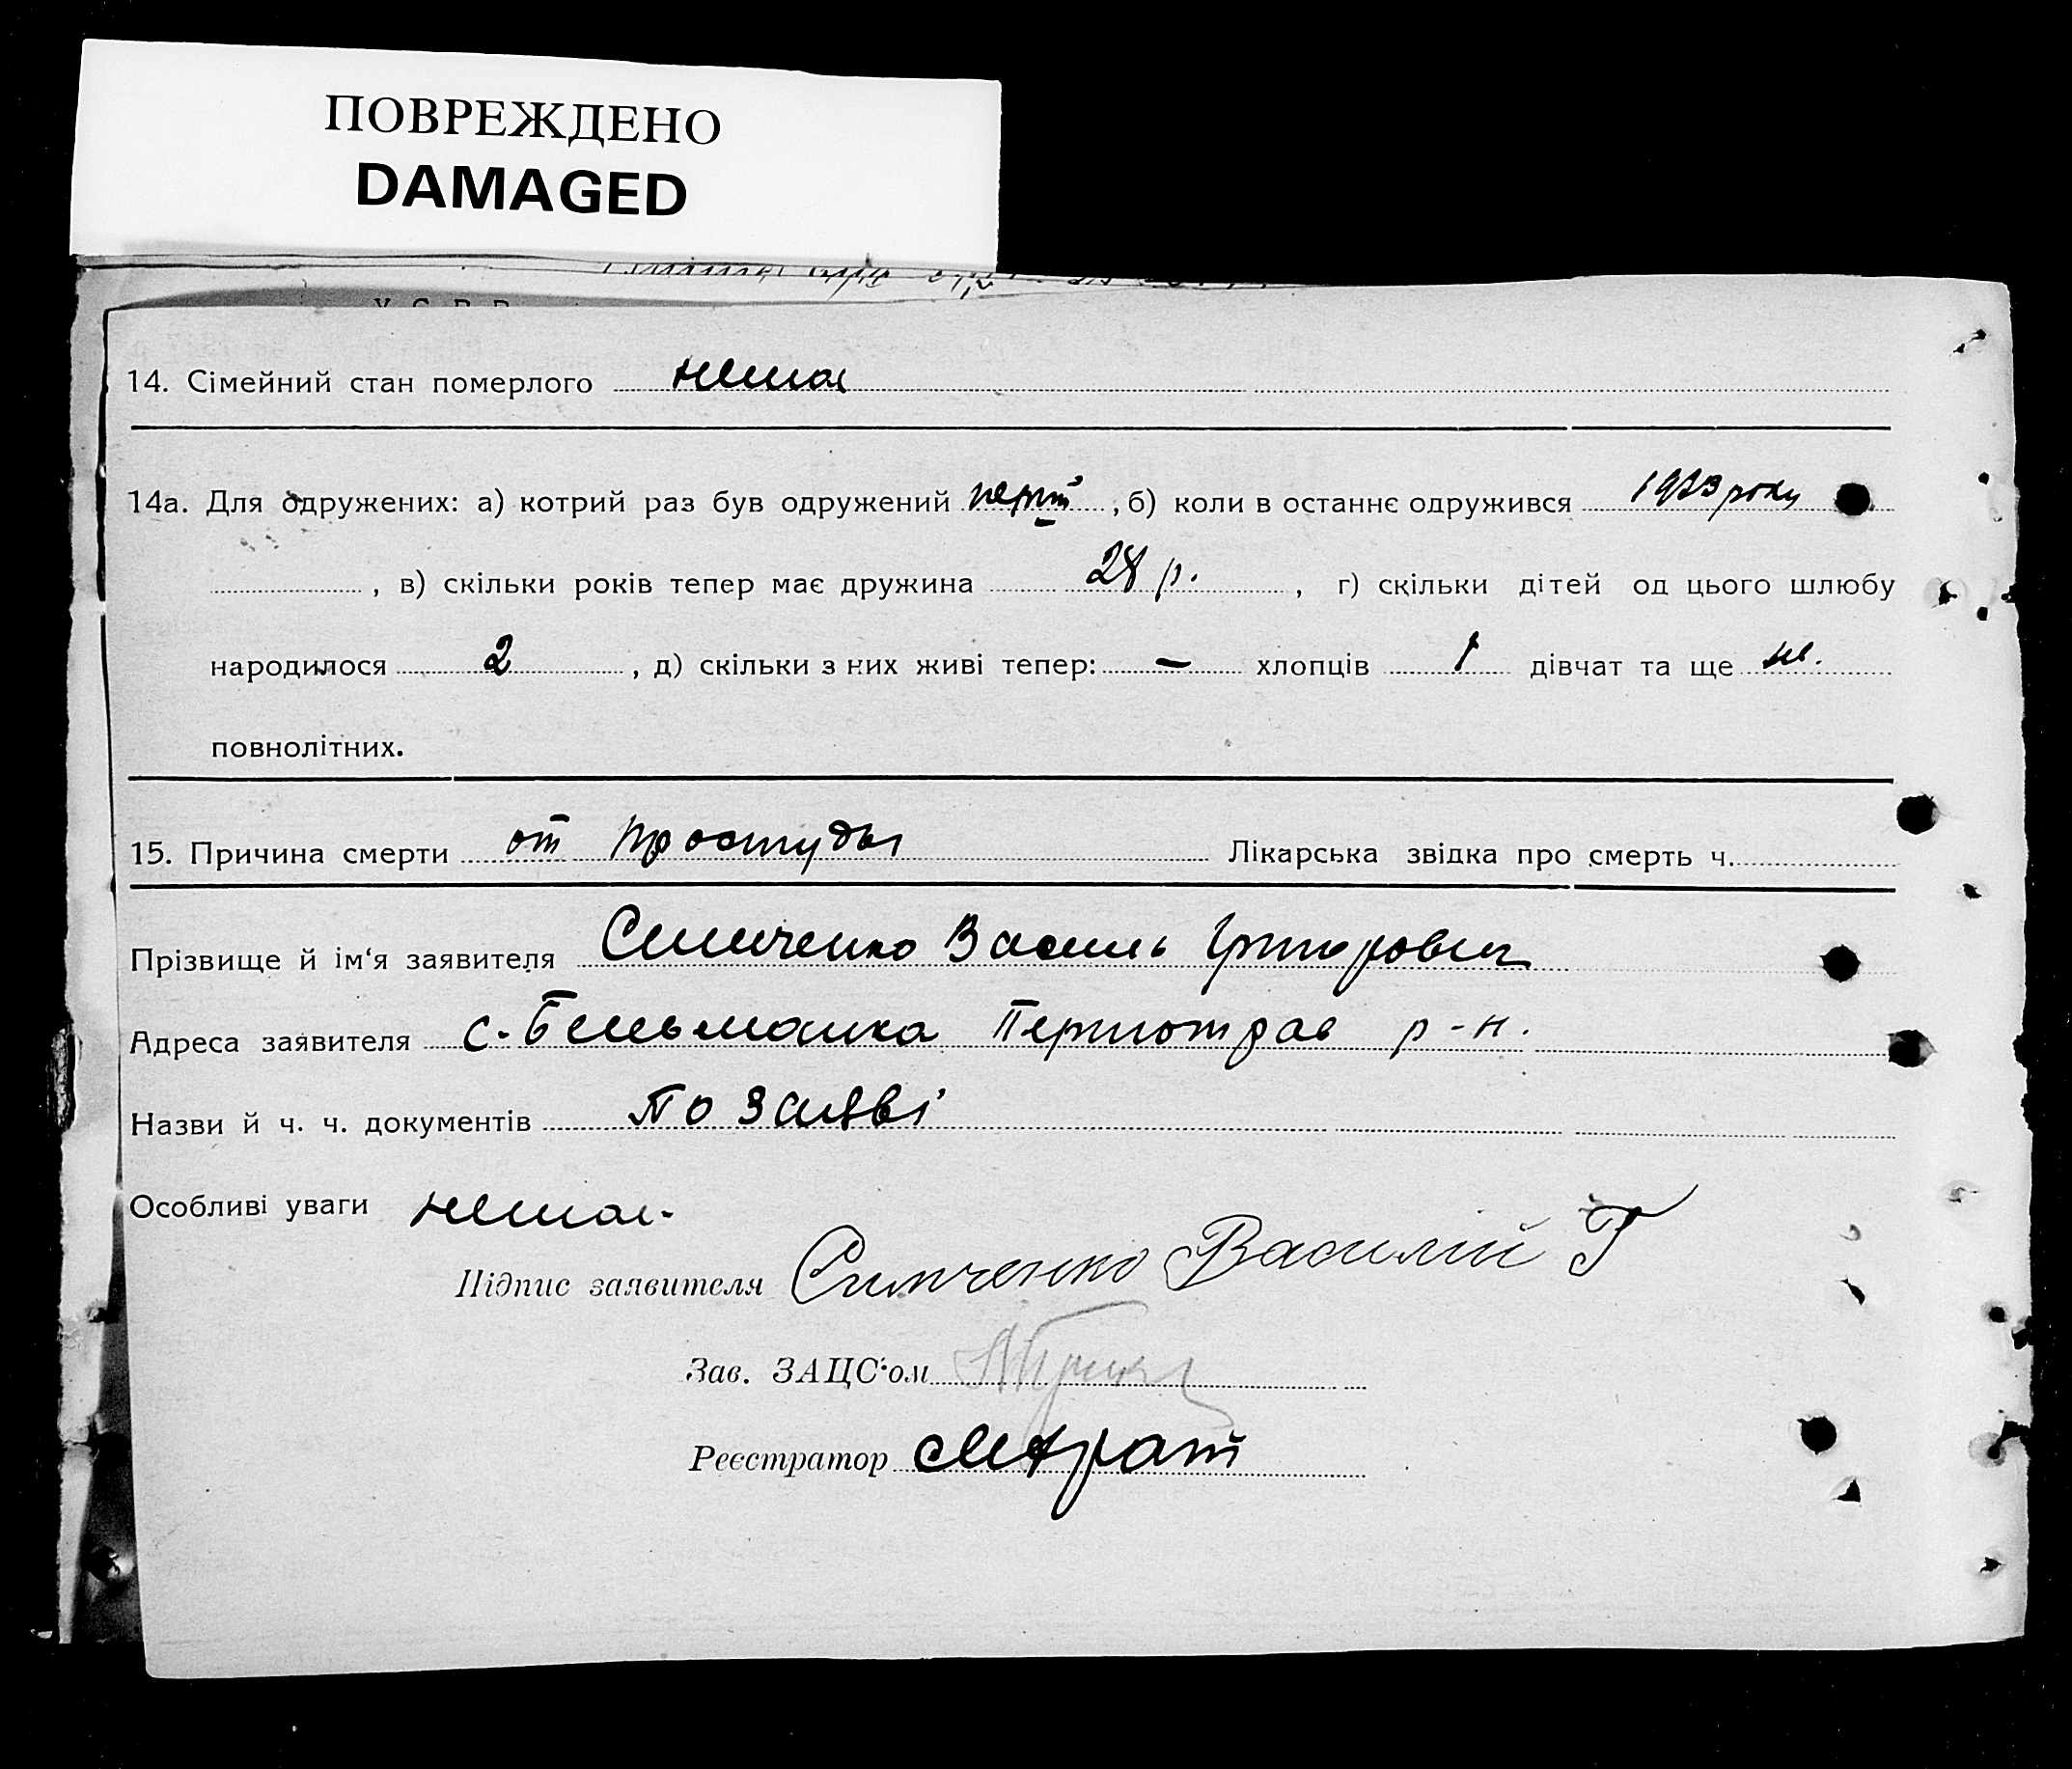 ПОВРЕЖДЕНО
DAMAGED
14. Сімейний стан померлого нема
14а. Для одружених: а) котрий раз був одружений перш , б) коли в останнє одружився 1923 року
, в) скільки років тепер має дружина 28 р. , г) скільки дітей од цього шлюбу
народилося 2 , д) скільки з них живі тепер: — хлопців 1 дівчат та ще
повнолітних.
15. Причина смерти от простуды Лікарська звідка про смерть ч.
Прізвище й ім'я заявителя Симченко Василь Григорович
Адреса заявителя с. Бельманка Першотрав р-н.
Назви й ч. ч. документів по заяві
Особливі уваги нема.
Підпис заявителя Симченко Василий Г
Зав. ЗАЦС'ом
Реєстратор